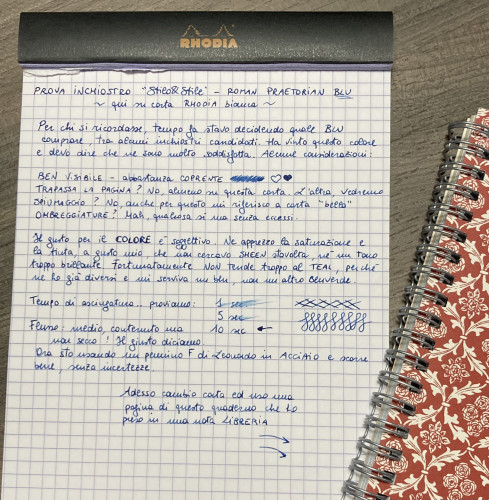 RHODIA
PROVA INCHIOSTRO "Stilo&Stile" - ROMAN PRAETORIAN BLU
~ qui su carta RHODIA bianca ~
Per chi si ricordasse, tempo fa stavo decidendo quale BLU
comprare, tra alcuni inchiostri candidati. Ha vinto questo colore
e devo dire che ne sono molto soddisfatta. Alcune considerazioni:
BEN VISIBILE - abbastanza COPRENTE
TRAPASSA LA PAGINA? No, almeno su questa carta. L'altra, vedremo
SPIUMAGGIO? No, anche per questo mi riferisco a carta "bella"
OMBREGGIATURE? Mah, qualcosa sì ma senza eccessi.
Il gusto per il COLORE è soggettivo. Ne apprezzo la saturazione e
la tinta, a gusto mio, che non cercavo SHEEN stavolta, né un tono
troppo brillante. Fortunatamente NON tende troppo al TEAL, perché
ne ho già diversi e mi serviva un blu, non un altro bluverde.
Tempo di asciugatura.. proviamo: 1 sec
5 sec
Flusso: medio, contenuto ma 10 sec ←
mai secco! Il giusto diciamo.
Ora sto usando un pennino F di Leonardo in Acciaio e scorre
bene, senza incertezze.
Adesso cambio carta ed uso una
pagina di questo quaderno che ho
preso in una nota LIBRERIA
→
→